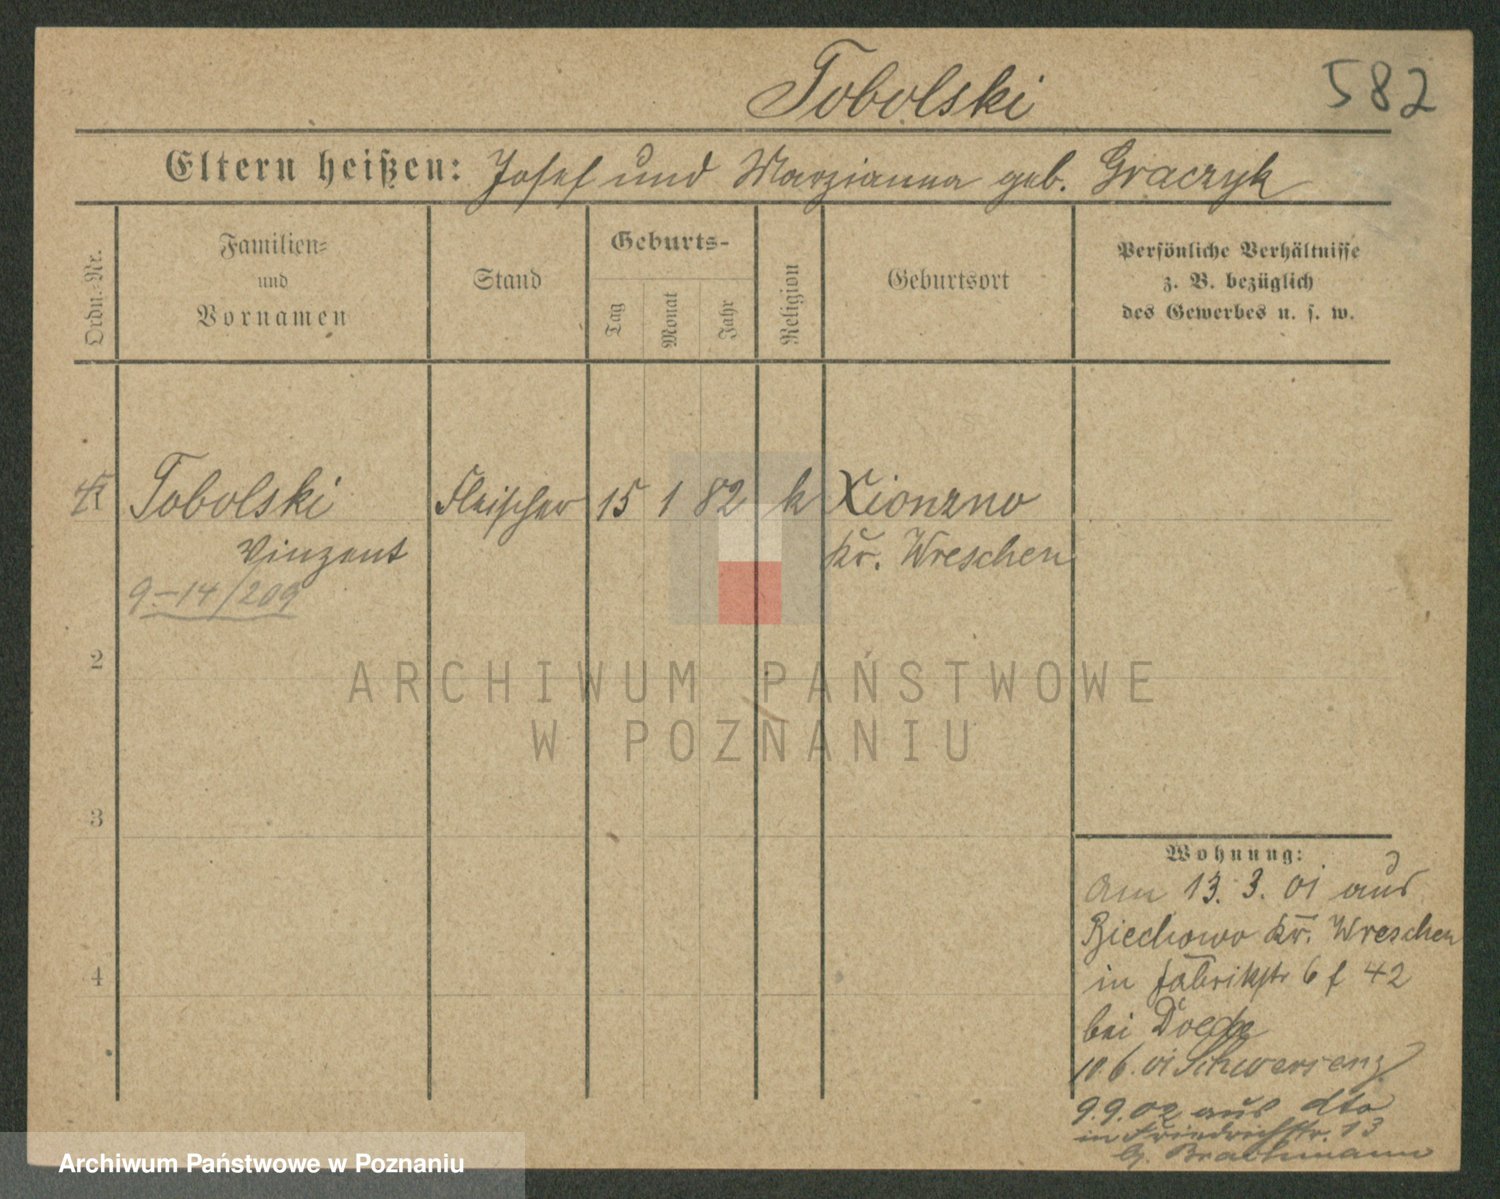 Tobolski 582
Eltern heißen: Josef und Marzianna geb. Graczyk
Ordn.-Nr.
Familien-
und
Vornamen
Stand
Geburts-
Tag
Monat
Jahr
Religion
Geburtsort
Persönliche Verhältnisse
z. B. bezüglich
des Gewerbes u. s. w.
Tobolski Fleischer 15 1 82 k Xionzno
Vinzent Kr. Wreschen
9-14/209
2
ARCHIWUM PAŃSTWOWE
W POZNANIU
3
Wohnung:
am 13. 3. 01 aus
Biechowo Kr. Wreschen
4
in Fabrikstr 6 f 42
bei
10.6.01 Schwersenz
9.9.02 aus dto
in Friedrichstr. 13
b. Brachmann
Archiwum Państwowe w Poznaniu